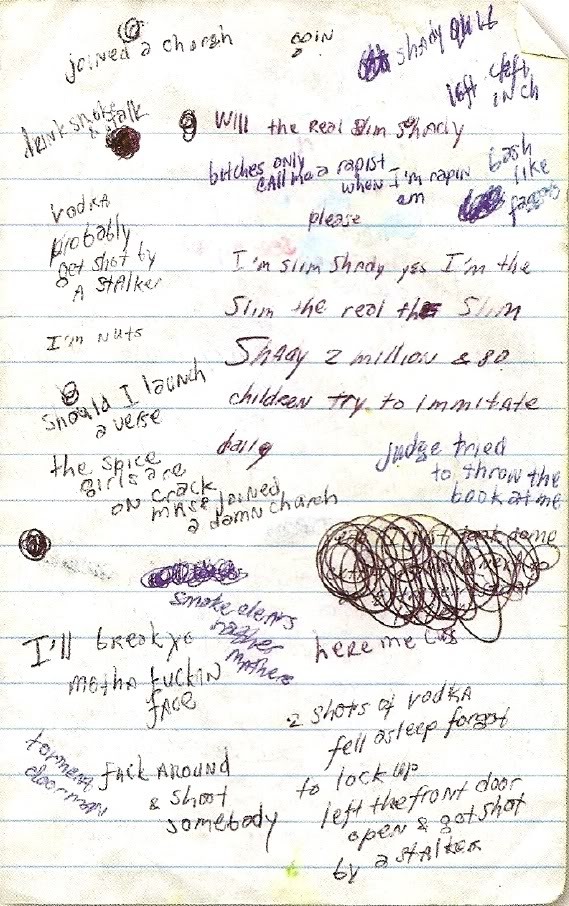 joined a church
coin
shady
left cleft
inch
drink smoke
& talk
Will the Real Slim Shady
bitches only
call me a rapist
when I'm rapin
em
bash
like
please
vodka
probably
get shot by
a stalker
I'm slim shady yes I'm the
Slim the real the Slim
I'm nuts
Shady 2 million & 80
Should I launch
a verse
children try to immitate
daily
judge tried
to throw the
book at me
the spice
girls are
on crack
mase joined
a damn church
smoke clears
I'll break yo
motha fuckin
face
here me
2 shots of vodka
fell asleep forgot
to lock up
left the front door
open & got shot
by a stalker
torment
doorman
fuck around
& shoot
somebody